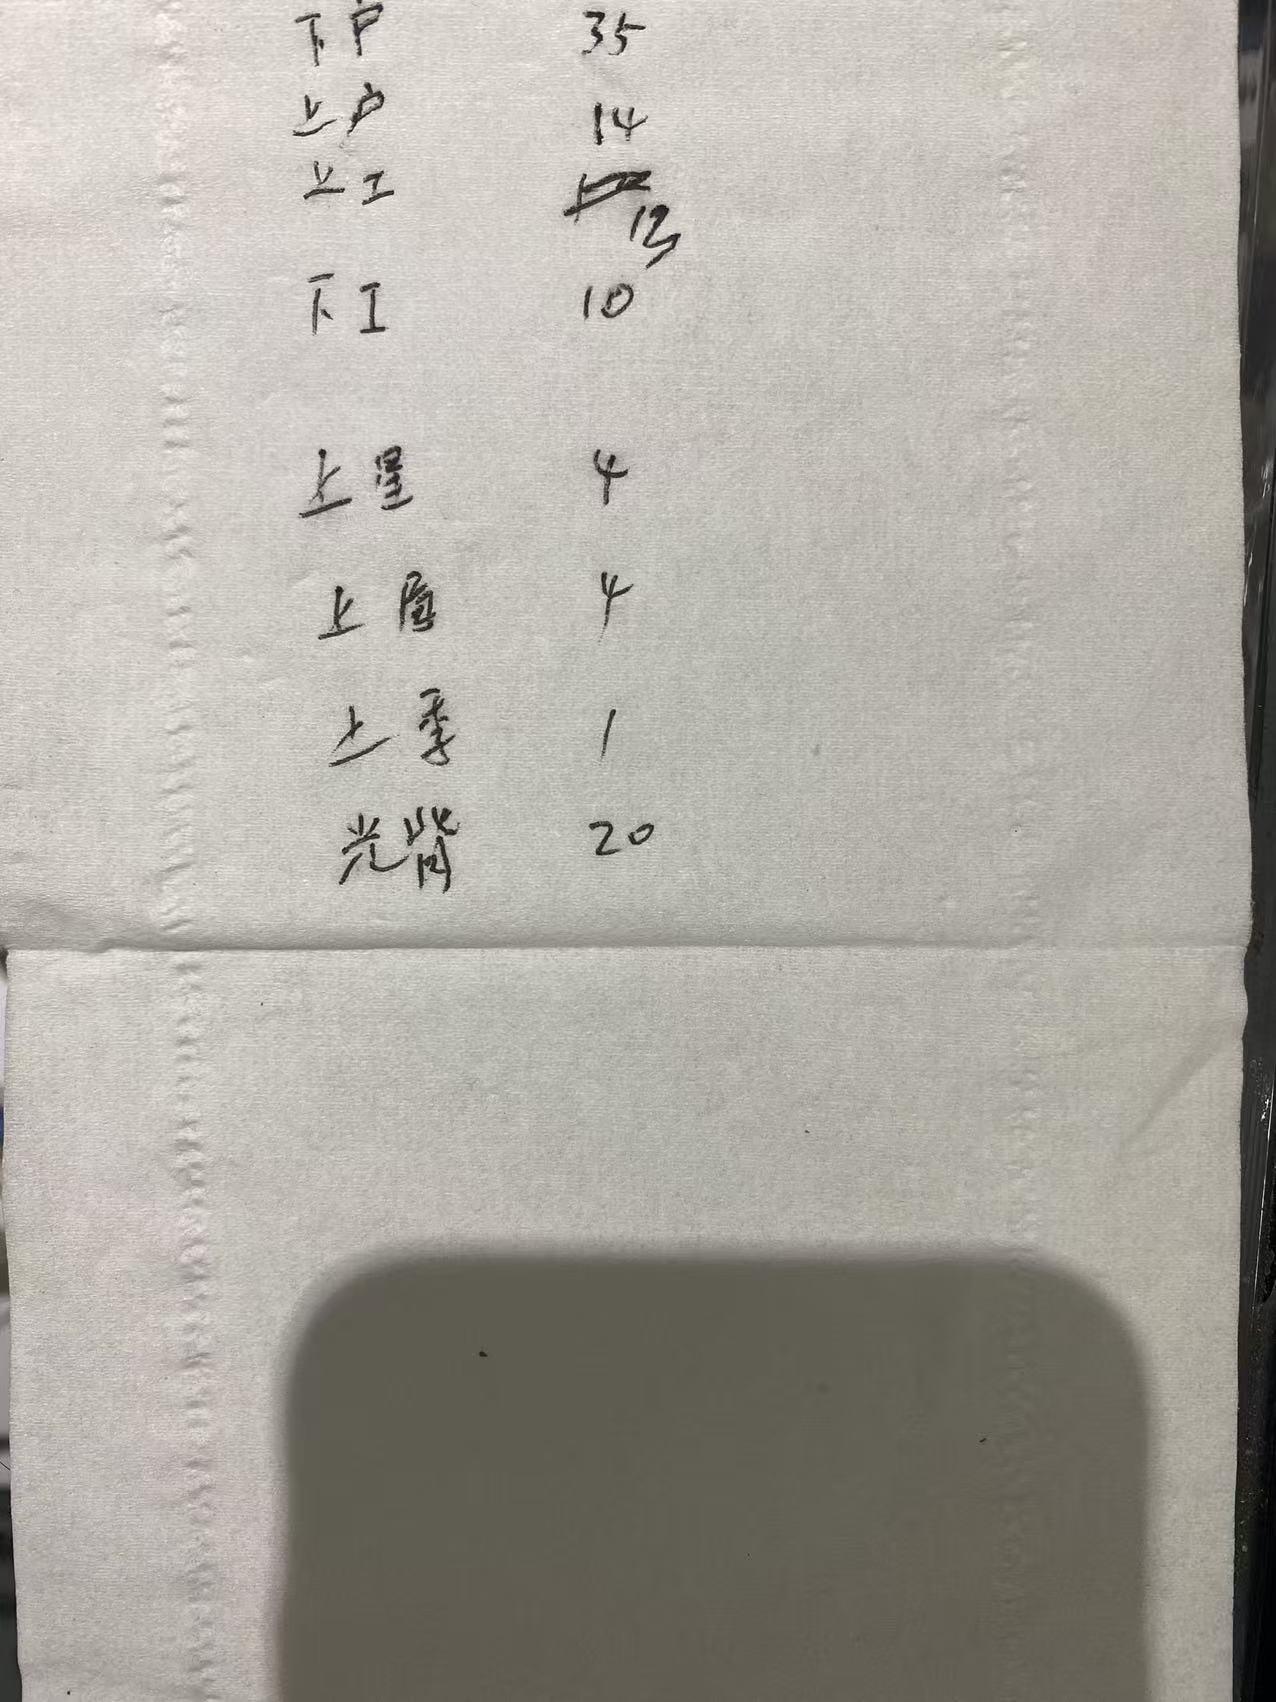 下户 35
上户 14
上工 13
下工 10
上星 4
上眉 4
上季 1
光背 20